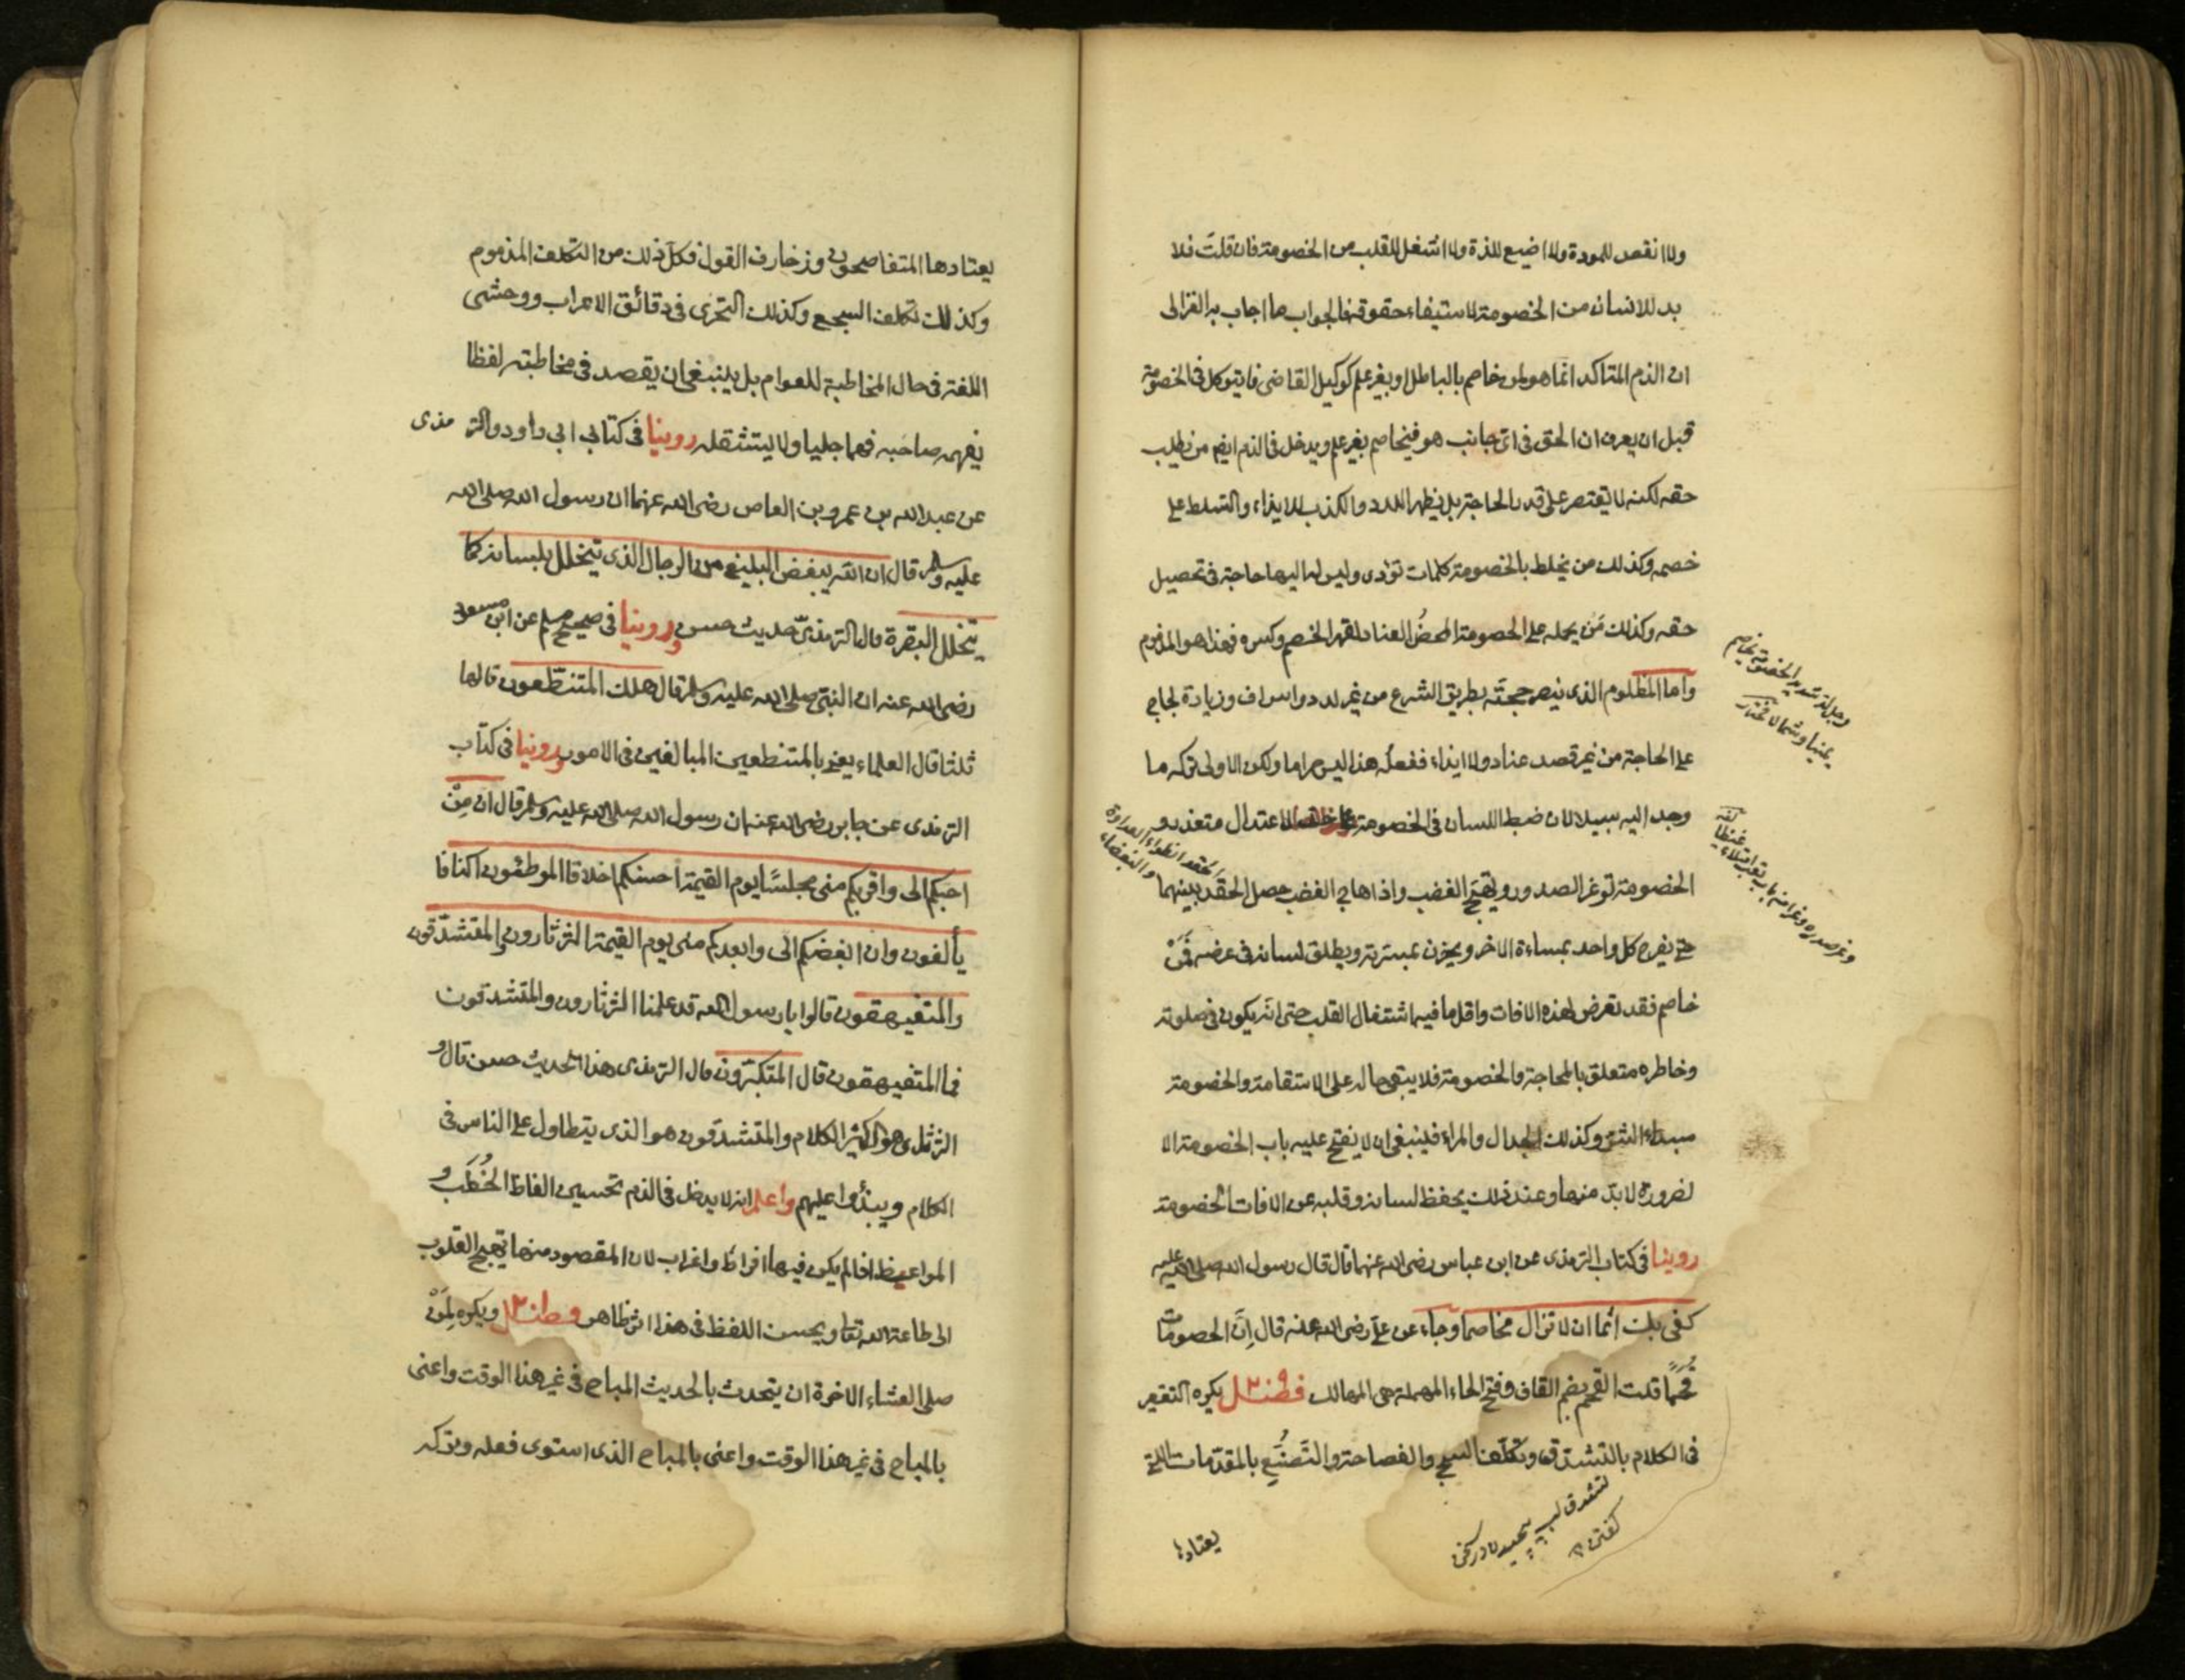 ولا انقص للمودة ولا اضيع للذة ولا اشغل للقلب من الخصومة فان قلتَ فلا
بد للانسان من الخصومة لاستيفاء حقوقه فالجواب ما اجاب به الغزالى
ان الذم المتاكد انما هو لمن خاصم بالباطل او بغير علم كوكيل القاضى فانه يتوكل فى الخصومة
قبل ان يعرف ان الحق فى اىّ جانب هو فيخاصم بغير علم ويدخل فى الذم ايضا من يطلب
حقه لكنه لا يقتصر على قدر الحاجة بل يظهر اللدد والكذب للايذاء والتسلط على
خصمه وكذلك من يخلط بالخصومة كلمات تؤذى وليس له اليها حاجة فى تحصيل
حقه وكذلك مَن يحمله على الخصومة محضُ العناد لقهر الخصم وكسره فهذا هو المذموم
واما المظلوم الذى ينصر حجتَه بطريق الشرع من غير لدد واسراف وزيادة لجاج
على الحاجة من غير قصد عناد ولا ايذاء ففعلُه هذا ليس حراما ولكن الاولى تركه ما
وجد اليه سبيلا لان ضبط اللسان فى الخصومة على حد الاعتدال متعذر و
الخصومة توغر الصدور وتهيّج الغضب واذا هاج الغضب حصل الحقد بينهما
حتى يفرح كل واحد بمساءة الاخر ويحزن بمسرته ويطلق لسانه فى عرضه فَمَنْ
خاصم فقد تعرض لهذه الافات واقل ما فيه اشتغال القلب حتى انه يكون فى صلوته
وخاطره متعلق بالمحاجة والخصومة فلا يبقى حاله على الاستقامة والخصومة
مبداء الشر وكذلك الجدال والمراء فينبغى ان لا يفتح عليه باب الخصومة الا
لضرورة لا بدّ منها وعند ذلك يحفظ لسانه وقلبه عن افات الخصومة
روينا فى كتاب الترمذى عن ابن عباس رضى الله عنهما قال قال رسول الله صلى الله عليه
كفى بك اثما ان لا تزال مخاصما وجاء عن علىّ رضى الله عنه قال اِنّ للخصومات
قُحَمًا قلت القحم بضم القاف وفتح الحاء المهملة هى المهالك فصل يكره التقعير
فى الكلام بالتشدق وتكلف السجع والفصاحة والتَصنُّع بالمقدّمات التى
يعتادها
وجل الد شديد الخصومة
والبغضاء
يعتادها المتفاصحون وزخارف القول فكل ذلك من التكلف المذموم
وكذلك تكلف السجع وكذلك التحرّى فى دقائق الاعراب ووحشى
اللغة فى حال المخاطبة للعوام بل ينبغى ان يقصد فى مخاطبته لفظا
يفهمه صاحبه فهما جليا ولا يستثقله روينا فى كتابى ابى داود والترمذى
عن عبد الله بن عمرو بن العاص رضى الله عنهما ان رسول الله صلى الله
عليه وسلم قال ان الله يبغض البليغ من الرجال الذى يتخلل بلسانه كما
يتخلل البقرة قال الترمذىّ حديث حسن وروينا فى صحيح مسلم عن ابن مسعود
رضى الله عنه ان النبىّ صلى الله عليه وسلم قال هلك المتنطّعون قالها
ثلثا قال العلماء يعنى بالمتنطعين المبالغين فى الامور وروينا فى كتاب
الترمذى عن جابر رضى الله عنه ان رسول الله صلى الله عليه وسلم قال ان مِنْ
احبكم الى واقربكم منى مجلسًا يوم القيمة احسنكم اخلاقا الموطئون اكنافا
يألفون وان ابغضكم الى وابعدكم منى يوم القيمة الثرثارون والمتشدّقون
والمتفيهقون قالوا يا رسول الله قد علمنا الثرثارون والمتشدقون
فما المتفيهقون قال المتكبّرون قال الترمذى هذا حديث حسن قال و
الثرثار هو الكثير الكلام والمتشدقون هو الذى يتطاول على الناس فى
الكلام ويبذُوا عليهم واعلم انه لا يدخل فى الذم تحسين الفاظ الخُطَب و
المواعظ اذا لم يكن فيها افراط واغراب لان المقصود منها تهييج القلوب
الى طاعة الله تعا ويحسن اللفظ فى هذا اثر ظاهر فصل ويكره لِمَنْ
صلى العشاء الاخرة ان يتحدث بالحديث المباح فى غير هذا الوقت واعنى
بالمباح فى غير هذا الوقت واعنى بالمباح الذى استوى فعله وتركه